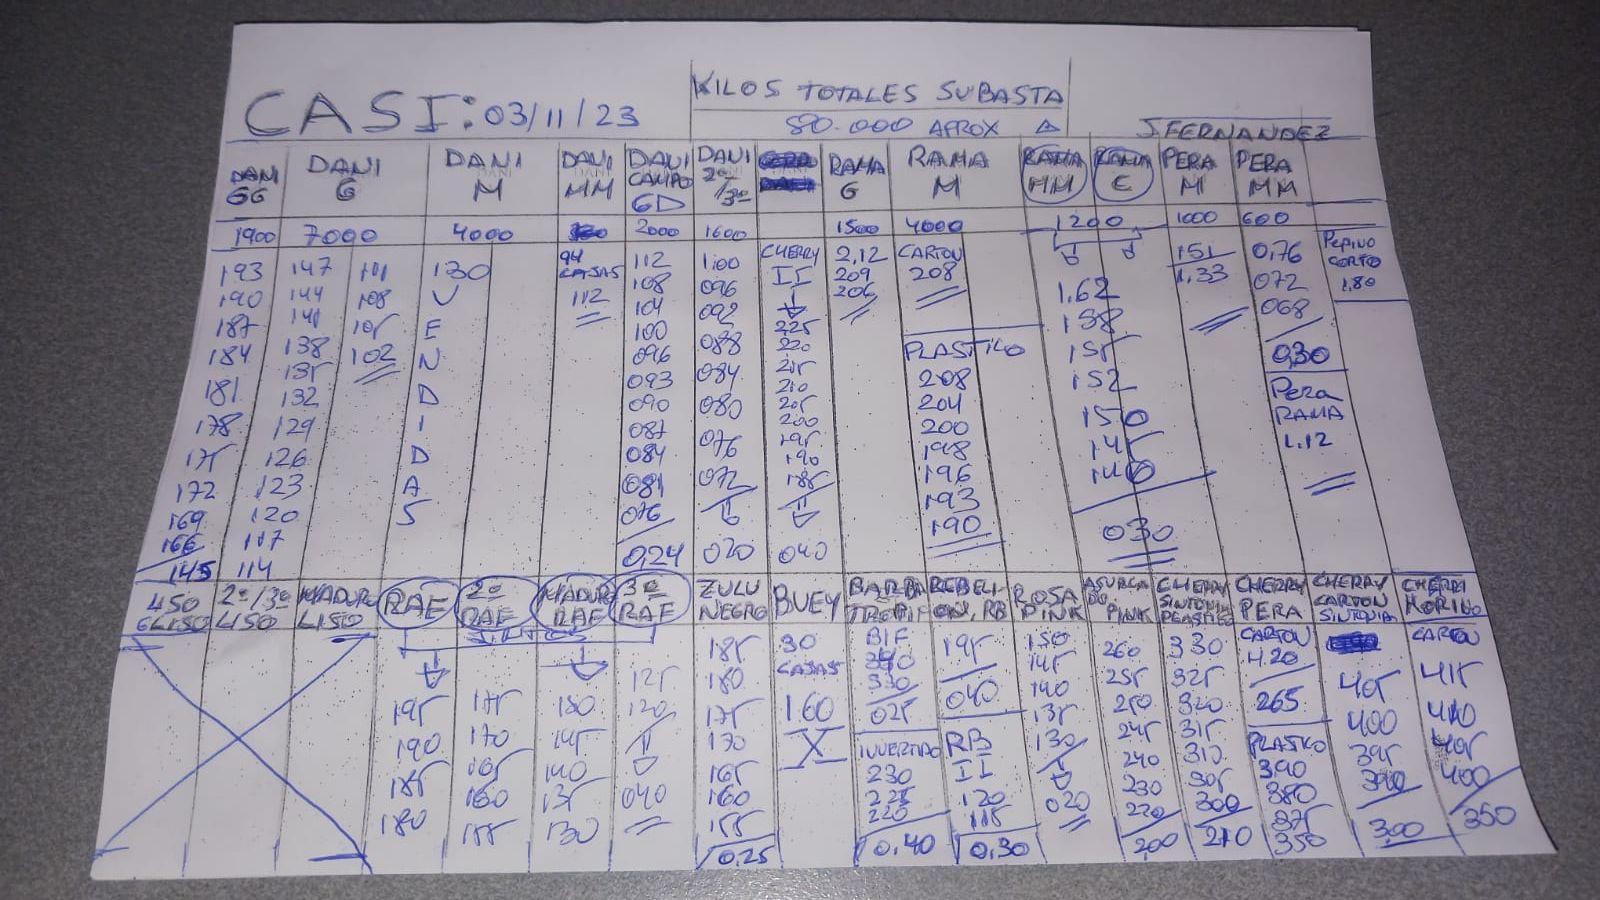 CASI: 03/11/23
KILOS TOTALES SUBASTA
890.000 APROX
J FERNANDEZ
DANI GG
DANI G
DANI M
DANI MM
DANI CAMPO GD
DANI 2ª/3ª
RAMA G
RAMA M
RAMA MM
RAMA C
PERA M
PERA MM
1900 7000 4000 2000 1600 1500 4000 1200 1000 600
193
190
187
184
181
178
175
172
169
166
145
147
144
141
138
135
132
129
126
123
120
117
114
111
108
105
102
130
VENDIDAS
94 CAJAS
112
112
108
104
100
096
093
090
087
084
081
076
0,24
1.00
096
092
088
084
080
076
072
020
CHERRY II
225
220
215
210
205
200
195
190
185
040
2,12
209
206
CARTON
208
PLASTICO
208
204
200
198
196
193
190
1.62
158
155
152
150
145
140
030
151
1.33
0,76
072
068
0,30
PERA RAMA
1.12
PEPINO CORTO
1,80
450 G LISO
2ª/3ª LISO
MADURO LISO
RAF
2ª RAF
MADURO RAF
3ª RAF
ZULU NEGRO
BUEY
REBELION, RB
ROSA PINK
ASURCADO PINK
CHERRY SINTONIA PLASTICO
CHERRY PERA
CHERRY CARTON SINTONIA
CHERRY
JUNTOS
195
190
185
180
175
170
165
160
155
150
145
140
135
130
125
120
040
185
180
175
170
165
160
155
0,25
30 CAJAS
1.60
X
330
025
INVERTIDO
230
225
220
0,40
195
040
RB II
120
115
0,30
150
145
140
135
130
020
260
255
250
245
240
230
220
200
330
325
320
315
310
305
300
210
CARTON
4.20
265
PLASTICO
390
380
375
350
405
400
395
390
300
CARTON
415
410
405
400
350